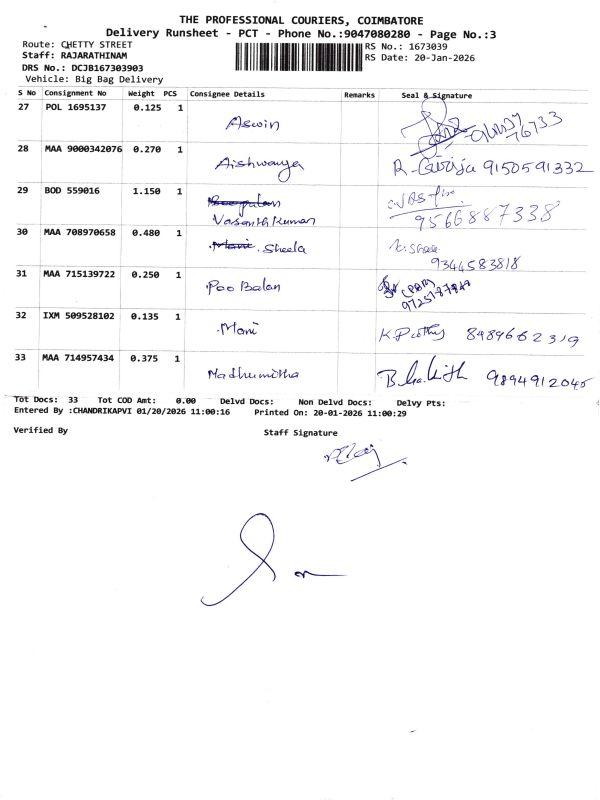 THE PROFESSIONAL COURIERS, COIMBATORE
Delivery Runsheet - PCT - Phone No.:9047080280 - Page No.:3
Route: CHETTY STREET
RS No.: 1673039
Staff: RAJARATHINAM
RS Date: 20-Jan-2026
DRS No.: DCJB167303903
Vehicle: Big Bag Delivery
S No Consignment No Weight PCS Consignee Details Remarks Seal & Signature
27 POL 1695137 0.125 1 Aswin
28 MAA 9000342076 0.270 1 Aishwarya R. Girija 9150591332
29 BOD 559016 1.150 1 Vasanth Kumar 9566887338
30 MAA 708970658 0.480 1 Mani. Sheela 9344583818
31 MAA 715139722 0.250 1 Poo Balan
32 IXM 509528102 0.135 1 Mani 8489662319
33 MAA 714957434 0.375 1 Madhumitha 9894912045
Tot Docs: 33 Tot COD Amt: 0.00 Delvd Docs: Non Delvd Docs: Delvy Pts:
Entered By :CHANDRIKAPVI 01/20/2026 11:00:16 Printed On: 20-01-2026 11:00:29
Verified By Staff Signature